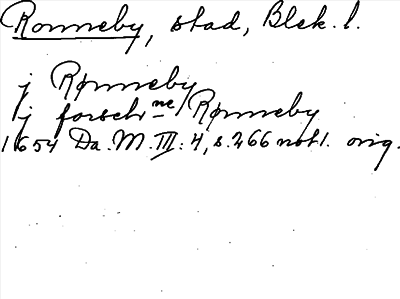 Ronneby, stad, Blek. l.
j Rønneby
ij forschr ne Rønneby
1654 Da. M. III: 4, s. 266 not 1. orig.